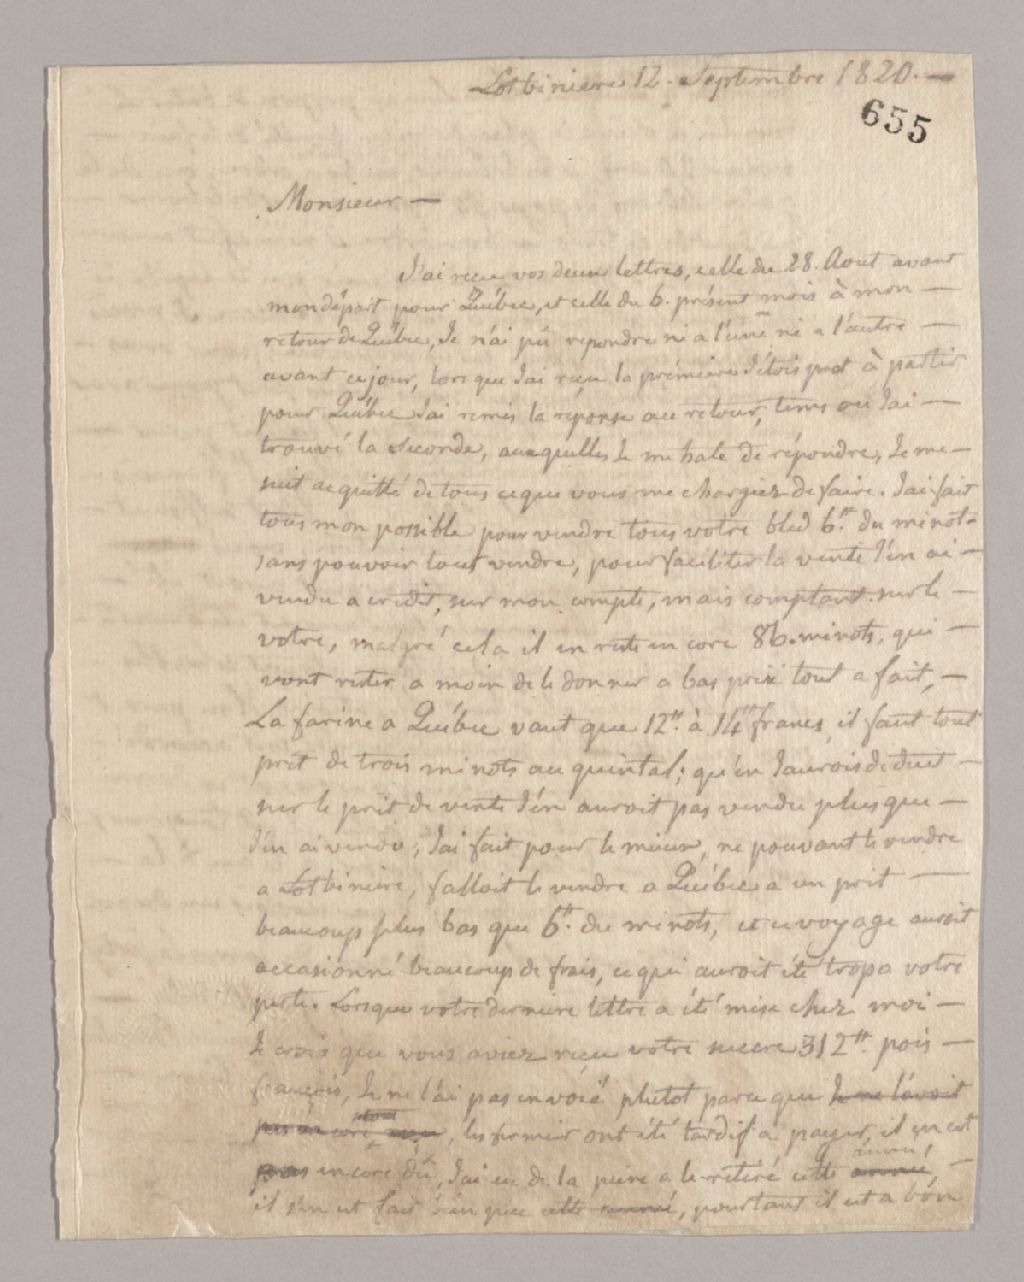 Lotbiniere 12. Septembre 1820. —
655
Monsieur —
J'ai reçu vos deux lettres, celle du 28. Aout avant
mon départ pour Québec, et celle du 6. présent mois à mon —
retour de Québec, Je n'ai pû repondre ni a l'une ni a l'autre —
avant ce jour, lorsque J'ai reçu la prémiere J'étois pret à partir
pour Québec J'ai remis la réponse au retour, tems ou J'ai —
trouvé la seconde, auxquelles Je me hate de répondre, Je me —
suit acquitté de tous ceque vous me chargiez de faire. J'ai fait
tous mon possible pour vendre tous votre bled 6.tt du minot
sans pouvoir tout vendre, pour faciliter la vente J'en ai —
vendu a crédit, sur mon compte, mais comptant sur le —
votre, malgré cela il en reste en core 86. minots, qui —
vont rester a moin de le donner a bas prix tout a fait, —
La farine a Québec vaut que 12tt. à 14tt francs, il faut tout
prêt de trois minots au quintal; qu'en J'aurois deduit —
sur le prit de vente J'en auroit pas vendu plus que —
J'en ai vendu; J'ai fait pour le mieux, ne pouvant le vendre
a Lotbiniere, falloit le vendre a Québec a un prit —
beaucoup plus bas que 6tt. du minots, et ce voyage auroit
occasionné beaucoup de frais, ce qui auroit été trop a votre
perte. Lorsque votre derniere lettre a été mise chez moi —
Je crois que vous aviez reçu votre sucre 312tt. pois —
françois, Je ne l'ai pas envoié plutot parce que Je ne l'avoit
pas en core tout, les fermier ont été tardif a payer, il en est
pas encore dû, J'ai eu de la peine a le retiré cette année, —
il s'en est fait rien que cette, pourtant il est a bon